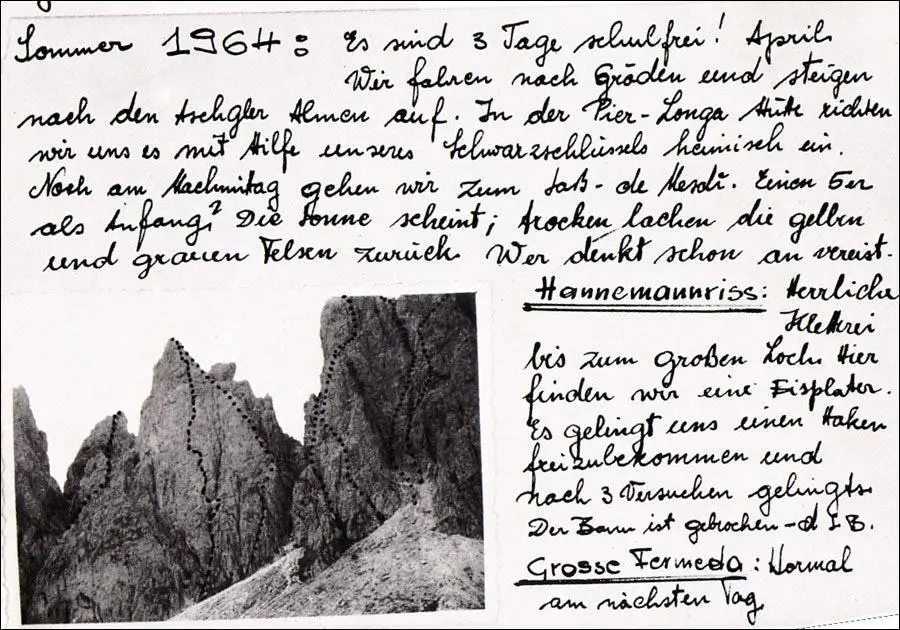 Sommer 1964: Es sind 3 Tage schulfrei! April.
Wir fahren nach Gröden und steigen
nach den Aschgler Almen auf. In der Pier-Longa Hütte richten
wir uns es mit Hilfe unseres Schwarzschlüssels heimisch ein.
Noch am Nachmitag gehen wir zum Saß-de Mesdi. Einen 5er
als Anfang? Die Sonne scheint; trocken lachen die gelben
und grauen Felsen zurück. Wer denkt schon an vereist.
Hannemannriss: Herrliche
Kletterei
bis zum großen Loch. Hier
finden wir eine Eisplatte.
Es gelingt uns einen Haken
freizubekommen und
nach 3 Versuchen gelingts.
Der Bann ist gebrochen - d
Grosse Fermeda: Normal
am nächsten Tag